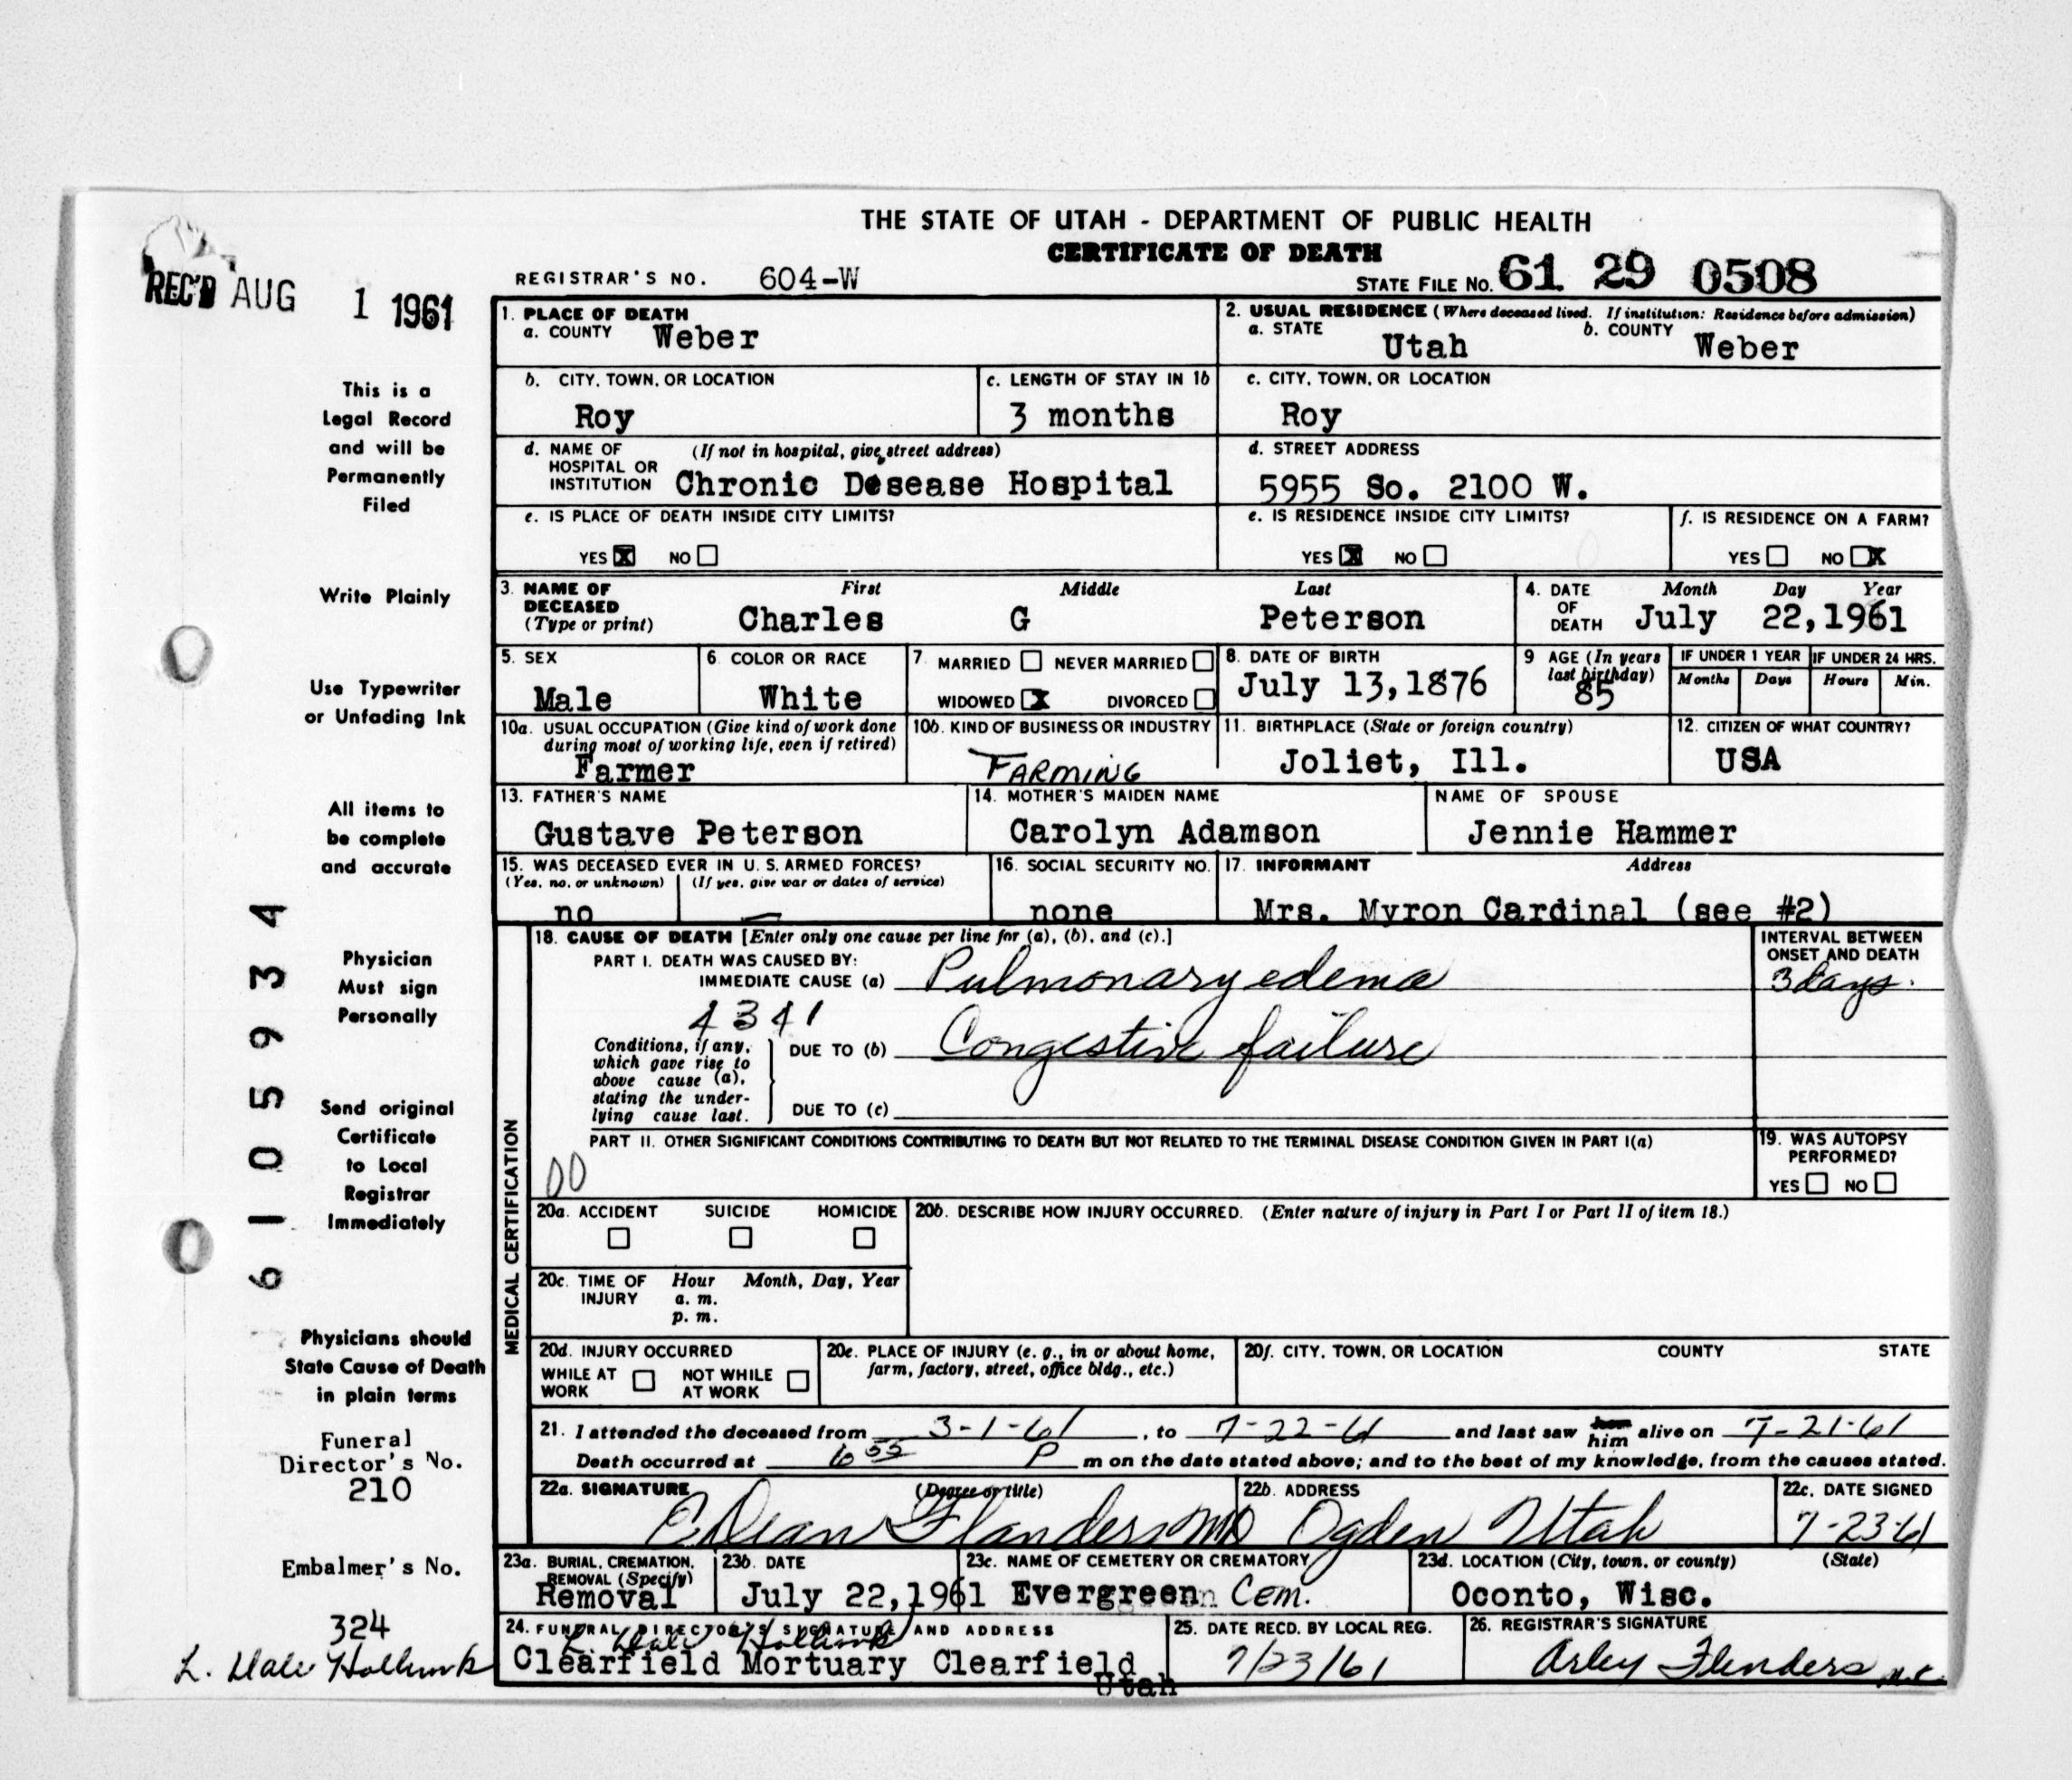 THE STATE OF UTAH - DEPARTMENT OF PUBLIC HEALTH
CERTIFICATE OF DEATH
REC'D AUG 1 1961
REGISTRAR'S NO. 604-W
STATE FILE No. 61 29 0508
This is a
Legal Record
and will be
Permanently
Filed
Write Plainly
Use Typewriter
or Unfading Ink
All items to
be complete
and accurate
Physician
Must sign
Personally
Send original
Certificate
to Local
Registrar
Immediately
Physicians should
State Cause of Death
in plain terms
Funeral
Director's No.
210
Embalmer's No.
324
L. Dale
6105934
1. PLACE OF DEATH
a. COUNTY Weber
2. USUAL RESIDENCE (Where deceased lived. If institution: Residence before admission)
a. STATE Utah b. COUNTY Weber
b. CITY, TOWN, OR LOCATION
Roy
c. LENGTH OF STAY IN 1b
3 months
c. CITY, TOWN, OR LOCATION
Roy
d. NAME OF (If not in hospital, give street address)
HOSPITAL OR
INSTITUTION Chronic Desease Hospital
d. STREET ADDRESS
5955 So. 2100 W.
e. IS PLACE OF DEATH INSIDE CITY LIMITS?
YES X NO
e. IS RESIDENCE INSIDE CITY LIMITS?
YES X NO
f. IS RESIDENCE ON A FARM?
YES NO X
3. NAME OF First Middle Last
DECEASED
(Type or print) Charles G Peterson
4. DATE Month Day Year
OF
DEATH July 22,1961
5. SEX
Male
6. COLOR OR RACE
White
7 MARRIED NEVER MARRIED
WIDOWED X DIVORCED
8. DATE OF BIRTH
July 13,1876
9 AGE (In years
last birthday)
85
IF UNDER 1 YEAR
Months Days
IF UNDER 24 HRS.
Hours Min.
10a. USUAL OCCUPATION (Give kind of work done
during most of working life, even if retired)
Farmer
10b. KIND OF BUSINESS OR INDUSTRY
FARMING
11. BIRTHPLACE (State or foreign country)
Joliet, Ill.
12. CITIZEN OF WHAT COUNTRY?
USA
13. FATHER'S NAME
Gustave Peterson
14. MOTHER'S MAIDEN NAME
Carolyn Adamson
NAME OF SPOUSE
Jennie Hammer
15. WAS DECEASED EVER IN U. S. ARMED FORCES?
(Yes, no, or unknown) (If yes, give war or dates of service)
no —
16. SOCIAL SECURITY NO.
none
17. INFORMANT Address
Mrs. Myron Cardinal (see #2)
MEDICAL CERTIFICATION
18. CAUSE OF DEATH [Enter only one cause per line for (a), (b), and (c).]
PART I. DEATH WAS CAUSED BY:
IMMEDIATE CAUSE (a) Pulmonary edema
INTERVAL BETWEEN
ONSET AND DEATH
3 days.
4341
Conditions, if any,
which gave rise to
above cause (a),
stating the under-
lying cause last.
DUE TO (b) Congestive failure
DUE TO (c)
PART II. OTHER SIGNIFICANT CONDITIONS CONTRIBUTING TO DEATH BUT NOT RELATED TO THE TERMINAL DISEASE CONDITION GIVEN IN PART I(a)
00
19. WAS AUTOPSY
PERFORMED?
YES NO
20a. ACCIDENT SUICIDE HOMICIDE
20b. DESCRIBE HOW INJURY OCCURRED. (Enter nature of injury in Part I or Part II of item 18.)
20c. TIME OF Hour Month, Day, Year
INJURY a. m.
p. m.
20d. INJURY OCCURRED
WHILE AT WORK NOT WHILE AT WORK
20e. PLACE OF INJURY (e. g., in or about home,
farm, factory, street, office bldg., etc.)
20f. CITY, TOWN, OR LOCATION COUNTY STATE
21. I attended the deceased from 3-1-61, to 7-22-61 and last saw her him alive on 7-21-61
Death occurred at 6 55 P m on the date stated above; and to the best of my knowledge, from the causes stated.
22a. SIGNATURE (Degree or title)
C Dean Flanders MD
22b. ADDRESS
Ogden Utah
22c. DATE SIGNED
7-23-61
23a. BURIAL, CREMATION,
REMOVAL (Specify)
Removal
23b. DATE
July 22,1961
23c. NAME OF CEMETERY OR CREMATORY
Evergreen Cem.
23d. LOCATION (City, town, or county) (State)
Oconto, Wisc.
24. FUNERAL DIRECTOR'S SIGNATURE AND ADDRESS
L. Dale
Clearfield Mortuary Clearfield
Utah
25. DATE RECD. BY LOCAL REG.
7/23/61
26. REGISTRAR'S SIGNATURE
Arley Flenders